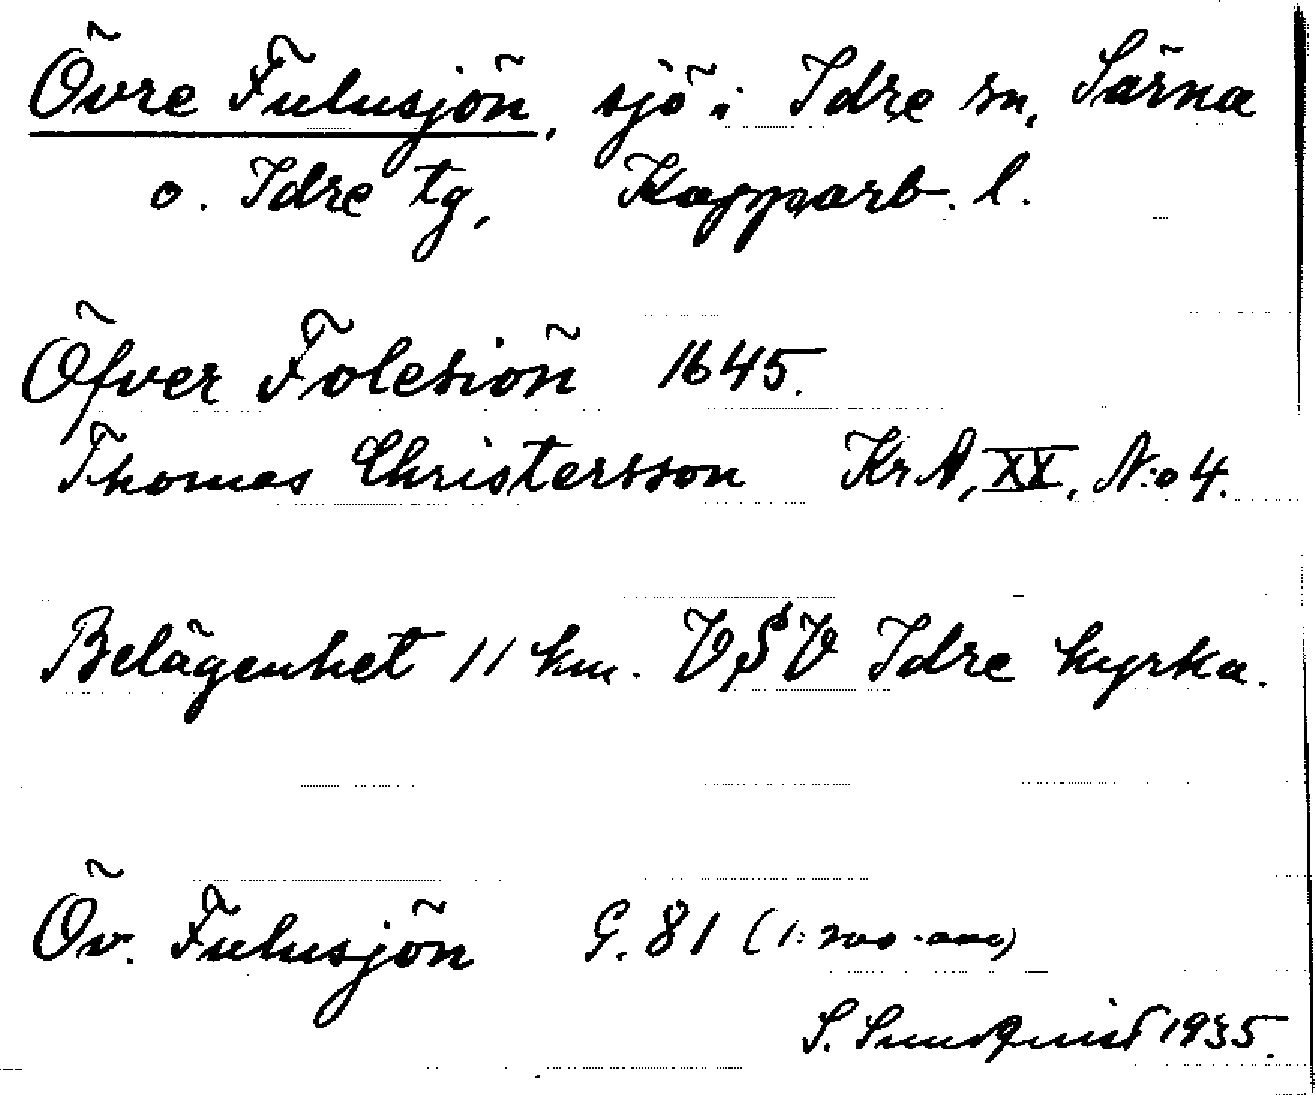 Övre Fulusjön, sjö i Idre sn, Särna
o. Idre tg, Kopparb. l.
Öfver Folesiön 1645.
Thomas Christersson KrA, XX, N:o 4.
Belägenhet 11 km. VSV Idre kyrka.
Öv. Fulusjön G. 81 (1:200.000)
S. Sundquist 1935.